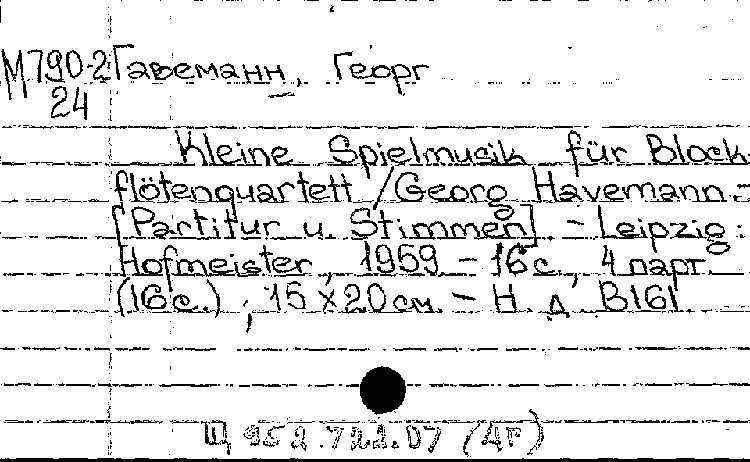 М790-2 Гавеманн, Георг
24
Kleine Spielmusik für Block-
flötenquartett / Georg Havemann.-
[Partitur u. Stimmen]. - Leipzig:
Hofmeister, 1959 - 16 с., 4 парт.
(16 с.) ; 15 x 20 см. - Н. д. В161
Щ 952.722.07 (4Г)